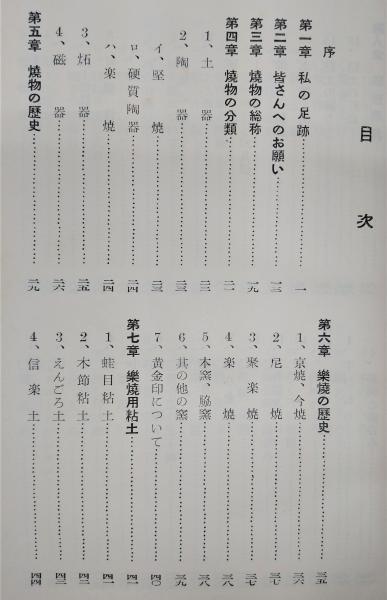 目次
序
第一章 私の足跡……一
第二章 皆さんへのお願い……一三
第三章 燒物の総称……一九
第四章 燒物の分類……二一
1、土器……二二
2、陶器……二三
イ、堅燒……二三
ロ、硬質陶器……二四
ハ、楽燒……二四
3、炻器……二五
4、磁器……二六
第五章 燒物の歴史……二九
第六章 樂燒の歴史……三五
1、京燒、今燒……三六
2、尼燒……三七
3、聚楽燒……三七
4、楽燒……三八
5、本窯、脇窯……三八
6、其の他の窯……三九
7、黄金印について……四〇
第七章 樂燒用粘土……四一
1、蛙目粘土……四一
2、木節粘土……四二
3、えんごろ土……四三
4、信楽土……四四